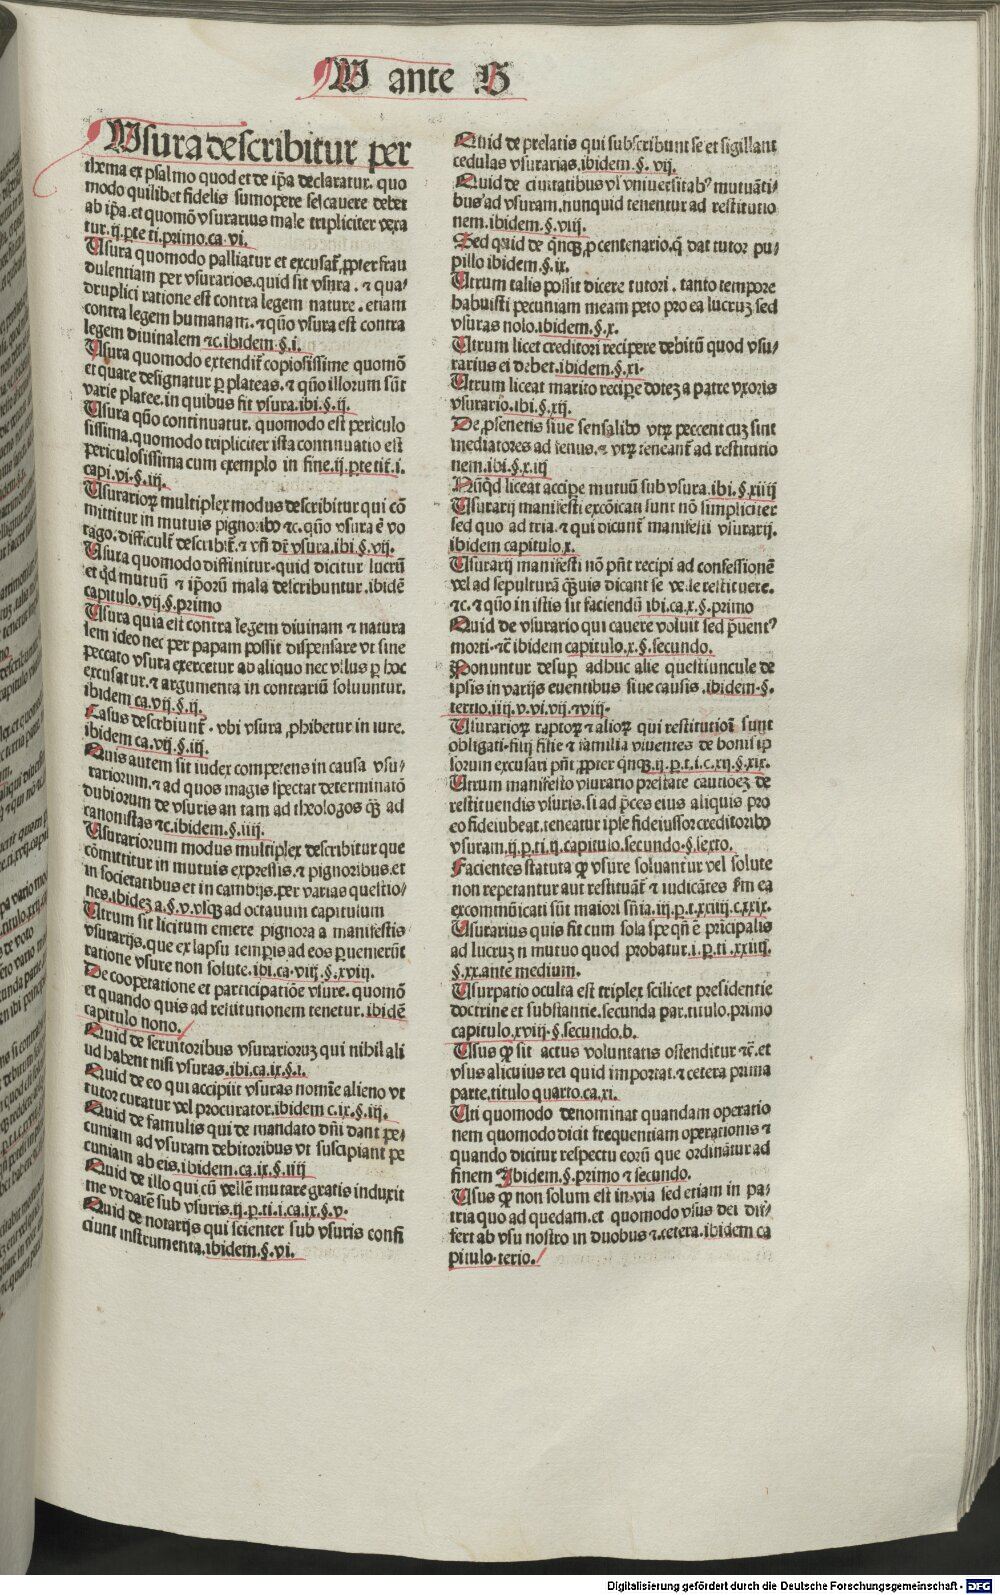 V ante S
Vsura describitur per
thema ex psalmo quod et de ip̄a declaratur. quo
modo quilibet fidelis sumopere se cauere debet
ab ip̄a. et quomō vsurarius male tripliciter vexa
tur. ij. p̱te ti. primo. ca. vi.
Vsura quomodo palliatur et excusat᷑ ꝓpter frau
dulentiam per vsurarios. quid sit vsura. ⁊ qua/
druplici ratione est contra legem nature. etiam
contra legem humanam. ⁊ quō vsura est contra
legem diuinalem ⁊c. ibidem. §. i.
Vsura quomodo extendit᷑ copiosissime quomō
et quare designatur ꝑ plateas. ⁊ quō illorum sūt
varie platee. in quibus fit vsura. ibi. §. ij.
Vsura quō continuatur. quomodo est periculo
sissima. quomodo tripliciter ista continuatio est
periculosissima cum exemplo in fine. ij. ꝑte tit. i.
capi. vi. §. iij.
Vsurarioꝝ multiplex modus describitur qui cō
mittitur in mutuis pignoribꝰ ⁊c. quō vsura ē vo
rago. difficult᷑ describit᷑. ⁊ vn̄ dr̄ vsura. ibi. §. vij.
Vsura quomodo diffinitur. quid dicitur lucrū
et qd̄ mutuū ⁊ ip̄orū mala describuntur. ibidē
capitulo. vij. §. primo
Vsura quia est contra legem diuinam ⁊ natura
lem ideo nec per papam possit dispensare vt sine
peccato vsura exercetur ab aliquo nec vllus ꝑ hoc
excusatur. ⁊ argumenta in contrariū soluuntur.
ibidem ca. vij. §. ij.
Casus describunt᷑. vbi vsura ꝓhibetur in iure.
ibidem ca. vij. §. iij.
Quis autem sit iudex competens in causa vsu/
rariorum. ⁊ ad quos magis spectat determinatō
dubiorum de vsuris an tam ad theologos q̄ꝫ ad
canonistas ⁊c. ibidem. §. iiij.
Vsurariorum modus multiplex describitur que
cōmittitur in mutuis expressis. ⁊ pignoribus. et
in societatibus et in cambijs. per varias questio/
nes. ibideꝫ a. §. v. vsqꝫ ad octauum capitulum
Vtrum sit licitum emere pignora a manifestis
vsurarijs. que ex lapsu temp̱is ad eos ꝑuenerūt
ratione vsure non solute. ibi. ca. viij. §. xviij.
De cooperatione et participatiōe vsure. quomō
et quando quis ad restitutionem tenetur. ibidē
capitulo nono.
Quid de seruitoribus vsurarioruꝫ qui nihil ali
ud habent nisi vsuras. ibi. ca. ix. §. i.
Quid de eo qui accipiit vsuras nomīe alieno vt
tutor curatur vel procurator. ibidem c. ix. §. iij.
Quid de famulis qui de mandato dn̄i dant pe/
cuniam ad vsuram debitoribus vt suscipiant pe
cuniam ab eis. ibidem. ca. ix. §. iiij
Quid de illo qui cū vellē mutare gratis induxit
me vt darē sub vsuris. ij. p. ti. i. ca. ix. §. v.
Quid de notarijs qui scienter sub vsuris confi
ciunt instrumenta. ibidem. §. vi.
Quid de prelatis qui subscribunt se et sigillant
cedulas vsurarias. ibidem. §. vij.
Quid de ciuitatibus vl᷑ vniuersitabꝰ mutuāti/
bus ad vsuram. nunquid tenentur ad restitutio
nem. ibidem. §. viij.
Sed quid de qn̄qꝫ ꝓ centenario. q̄ dat tutor pu/
pillo ibidem. §. ix.
Vtrum talis possit dicere tutori. tanto tempore
habuisti pecuniam meam peto pro ea lucruꝫ sed
vsuras nolo. ibidem. §. x.
Vtrum licet creditori recipere debitū quod vsu/
rarius ei debet. ibidem. §. xi.
Vtrum liceat marito recipe doteꝫ a patre vxoris
vsurario. ibi. §. xij.
De ꝓsenetis siue sensalibꝰ vtꝝ peccent cuꝫ sint
mediatores ad fenus. ⁊ vtꝝ teneant᷑ ad restitutio
nem. ibi. §. x.iij
Nūqd̄ liceat accipe mutuū sub vsura. ibi. §. xiiij
Vsurarij manifesti excōicati sunt nō simpliciter
sed quo ad tria. ⁊ qui dicunt᷑ manifesti vsurarij.
ibidem capitulo. x.
Vsurarij manifesti nō pn̄t recipi ad confessionē
vel ad sepulturā q̄ꝫuis dicant se velle restituere.
⁊c. ⁊ quō in istis sit faciendū ibi. ca. x. §. primo
Quid de vsurario qui cauere voluit sed p̄uentꝰ
morti. ⁊c̄ ibidem capitulo. x. §. secundo.
Ponuntur desuꝑ adhuc alie questiuncule de
ipsis in varijs euentibus siue causis. ibidem. §.
tertio. iiij. v. vi. vij. ⁊ viij.
Vsurarioꝝ raptoꝝ ⁊ alioꝝ qui restitutioī sunt
obligati. filij filie ⁊ familia viuentes de bonis ip
sorum excusari pn̄t ꝓpter qn̄qꝫ. ij. p. t. i. c. xij. §. xix.
Vtrum manifesto vsurario prestate cautiōeꝫ de
restituendis vsuris. si ad p̄ces eius aliquis pro
eo fideiubeat. teneatur ipse fideiussor creditoribꝰ
vsuram. ij. p. ti. ij. capitulo. secundo. §. sexto.
Facientes statuta ꝙ vsure soluantur vel solute
non repetantur aut restituāt᷑ ⁊ iudicātes ẜm ea
excommūicati sūt maiori sn̄ia. iij. p. t. xxiiij. c. xxix.
Vsurarius quis fit cum sola spe qn̄ ē pricipalis
ad lucruꝫ n mutuo quod probatur. i. p. ti. xxiiij.
§. xx. ante medium.
Vsurpatio oculta est triplex scilicet presidentie
doctrine et substantie. secunda par. titulo. primo
capitulo. xviij. §. secundo. b.
Vsus ꝙ sit actus voluntatis ostenditur ⁊c̄. et
vsus alicuius rei quid importat. ⁊ cetera prima
parte. titulo quarto. ca. xi.
Vti quomodo denominat quandam operatio
nem quomodo dicit frequentiam operationis ⁊
quando dicitur respectu eorū que ordināt̄ur ad
finem Ibidem. §. primo ⁊ secundo.
Vsus ꝙ non solum est in via sed etiam in pa/
tria quo ad quedam. et quomodo vsus dei dif/
fert ab vsu nostro in duobus ⁊ cetera. ibidem ca
pitulo. terio.
Digitalisierung gefördert durch die Deutsche Forschungsgemeinschaft - DFG